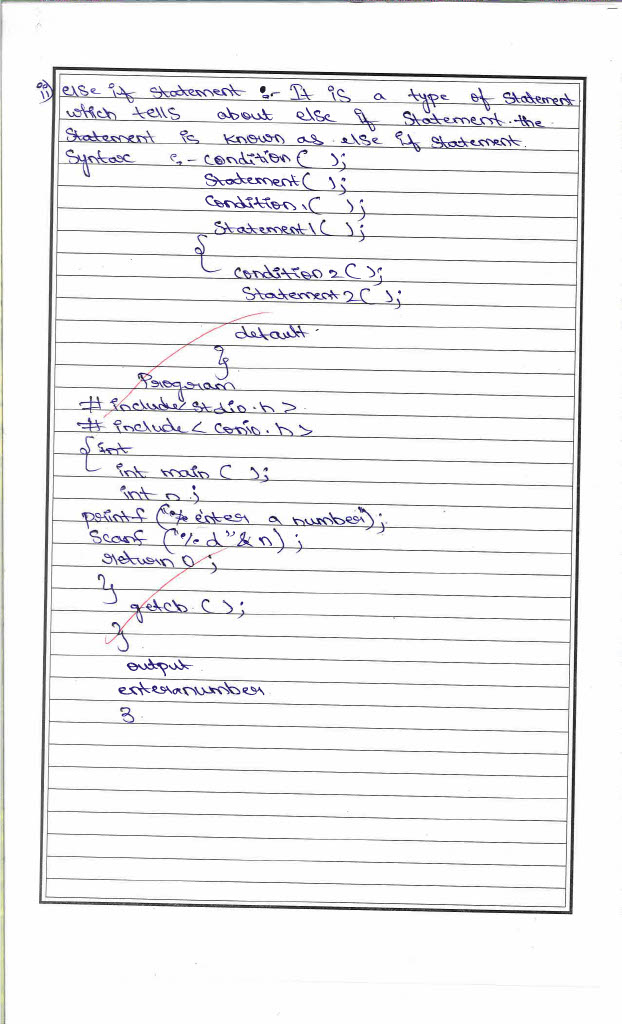 ii) else if statement :- It is a type of statement
which tells about else if statement. the
statement is known as else if statement.
Syntax :- condition ( );
statement ( );
condition1 ( );
statement1 ( );
{
condition2 ( );
statement2 ( );
default.
}
Program
# include stdio.h >
# include < conio.h >
{ int
int main ( );
int n ;
printf ("% enter a number");
scanf ("% d" & n) ;
return 0 ;
}
getch ( );
}
output
enteranumber
3